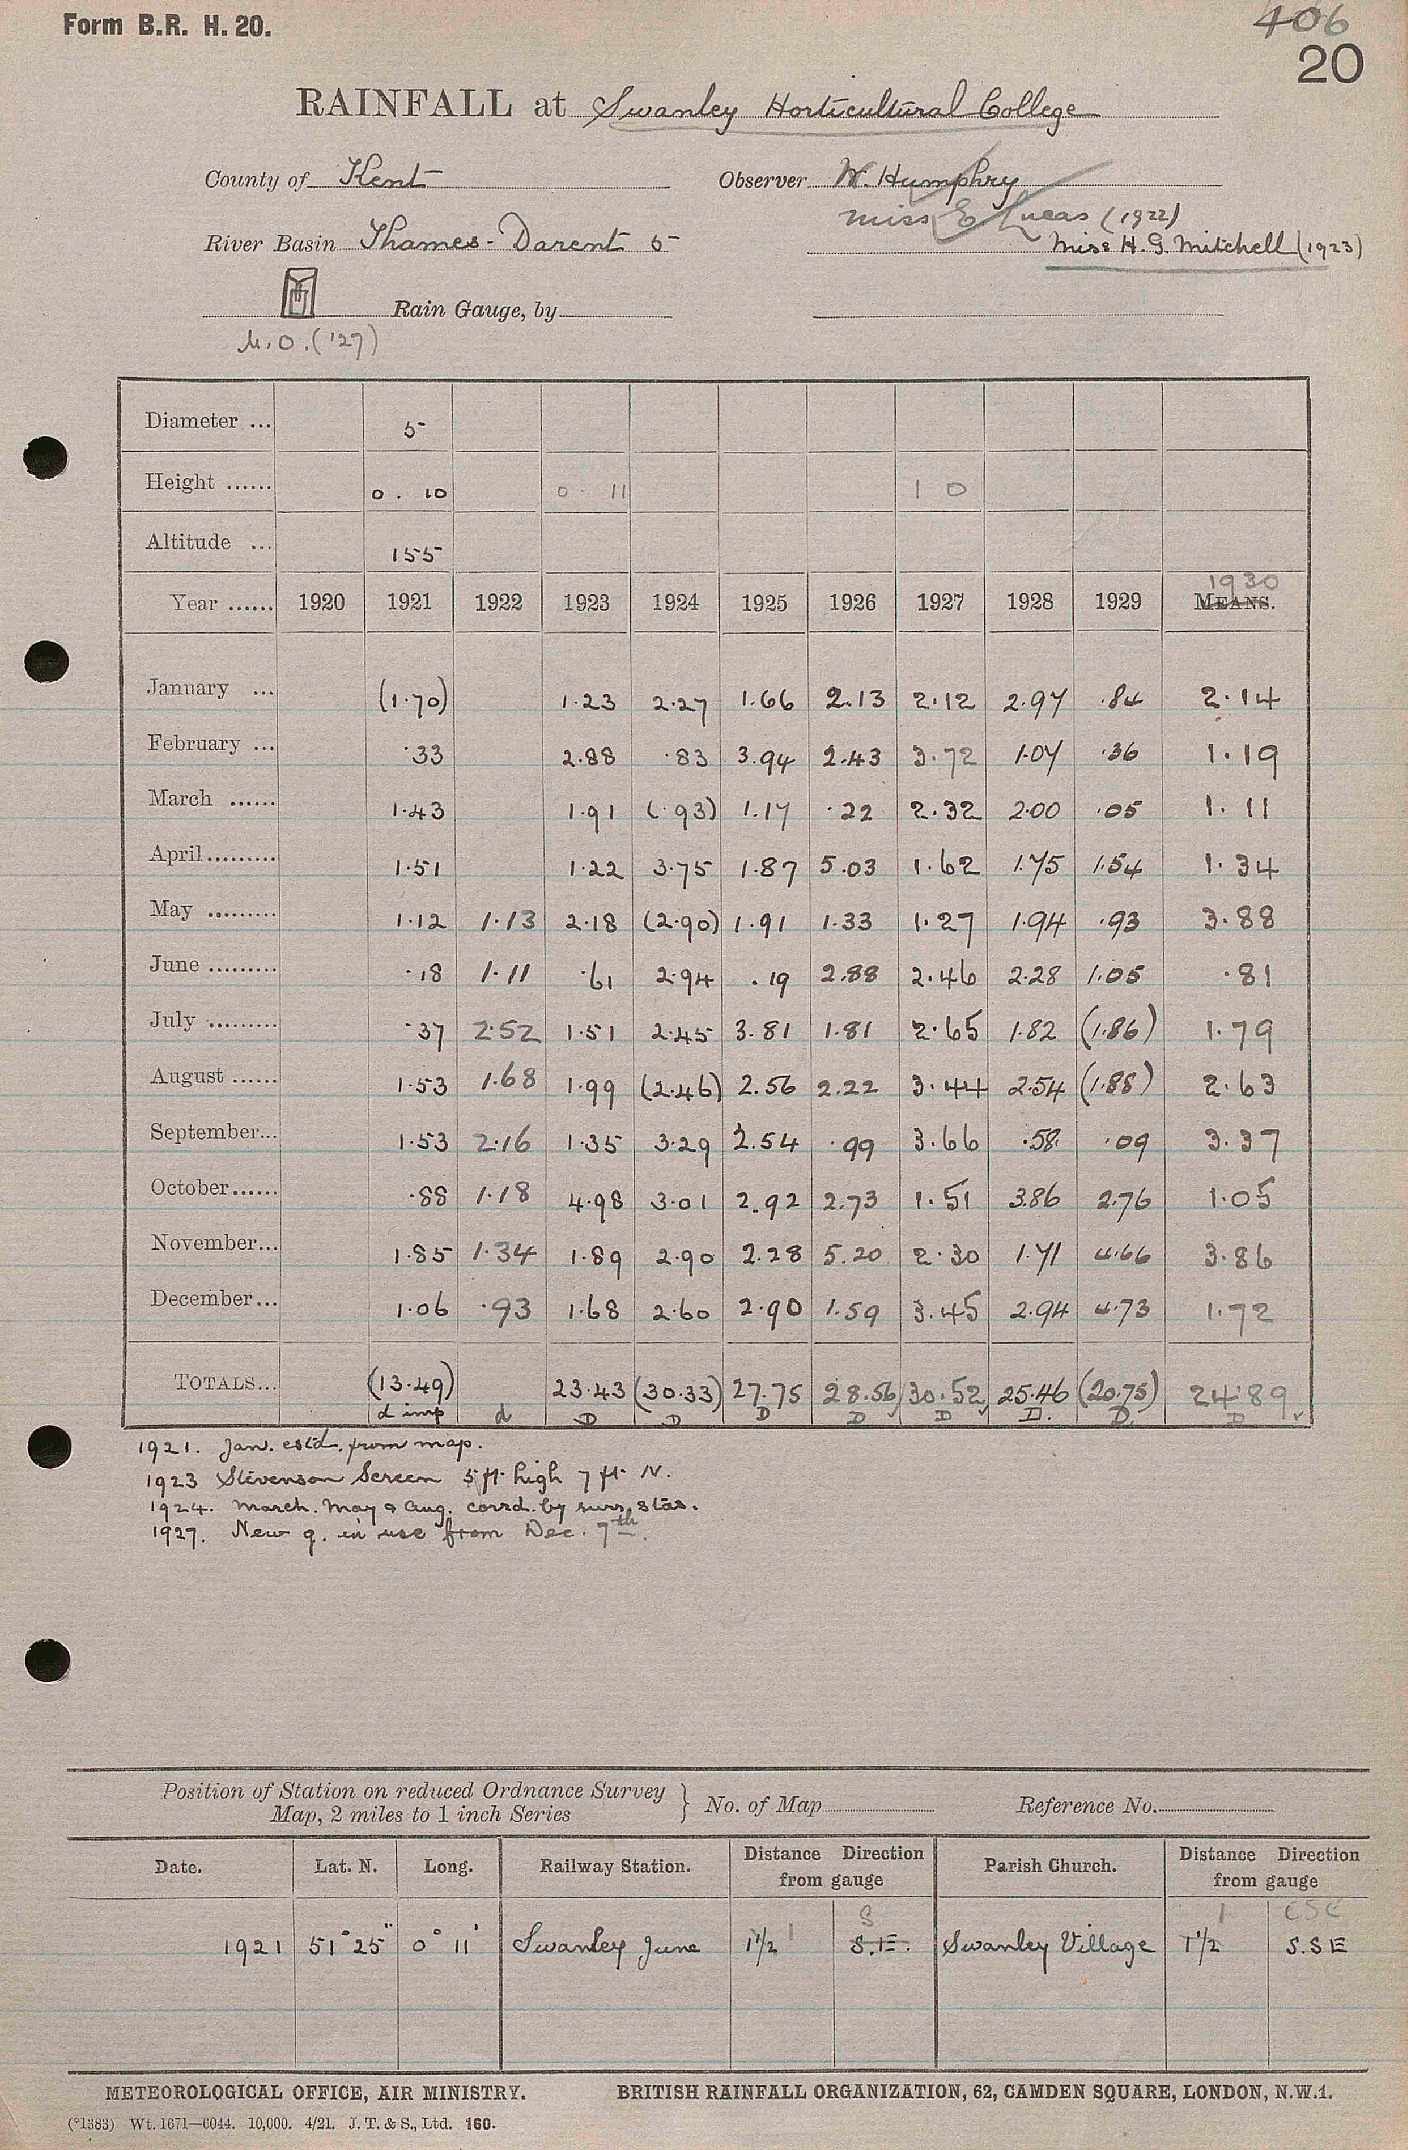 Form B.R. H. 20.
406
20
RAINFALL at Swanley Horticultural College
County of Kent Observer W. Humphry
Miss E Lucas (1922)
River Basin Thames - Darent 5 Miss H. G. Mitchell (1923)
Rain Gauge, by
M.O. ('27)
Diameter ... 5
Height ...... 0 . 10 0 . 11 1 0
Altitude ... 155
1930
Year ...... 1920 1921 1922 1923 1924 1925 1926 1927 1928 1929 MEANS.
January ... (1.70) 1.23 2.27 1.66 2.13 2.12 2.97 .84 2.14
February ... .33 2.88 .83 3.94 2.43 3.72 1.07 .36 1.19
March ...... 1.43 1.91 (.93) 1.17 .22 2.32 2.00 .05 1.11
April ......... 1.51 1.22 3.75 1.87 5.03 1.62 1.75 1.54 1.34
May ......... 1.12 1.13 2.18 (2.90) 1.91 1.33 1.27 1.94 .93 3.88
June ......... .18 1.11 .61 2.94 .19 2.88 2.46 2.28 1.05 .81
July ......... .37 2.52 1.51 2.45 3.81 1.81 2.65 1.82 (1.86) 1.79
August ...... 1.53 1.68 1.99 (2.46) 2.56 2.22 3.44 2.54 (1.88) 2.63
September... 1.53 2.16 1.35 3.29 2.54 .99 3.66 .58 .09 3.37
October ...... .88 1.18 4.98 3.01 2.92 2.73 1.51 3.86 2.76 1.05
November... 1.85 1.34 1.89 2.90 2.28 5.20 2.30 1.71 4.66 3.86
December... 1.06 .93 1.68 2.60 2.90 1.59 3.45 2.94 4.73 1.72
TOTALS... (13.49) 23.43 (30.33) 27.75 28.56 30.52 25.46 (20.75) 24.89
d imp d D D D D D D. D. D
1921. Jan. estd. from map.
1923 Stevenson Screen 5 ft high 7 ft N.
1924. March. May & Aug. corrd. by surr. stas.
1927. New g. in use from Dec. 7th.
Position of Station on reduced Ordnance Survey
Map, 2 miles to 1 inch Series } No. of Map Reference No.
Date. Lat. N. Long. Railway Station. Distance Direction from gauge Parish Church. Distance Direction from gauge
S 1 ESE
1921 51° 25" 0° 11' Swanley June 1½ 1 S.E. Swanley Village 1½ S.S E
METEOROLOGICAL OFFICE, AIR MINISTRY. BRITISH RAINFALL ORGANIZATION, 62, CAMDEN SQUARE, LONDON, N.W.1.
(*1383) Wt. 1671—6044. 10,000. 4/21. J. T. & S., Ltd. 160.